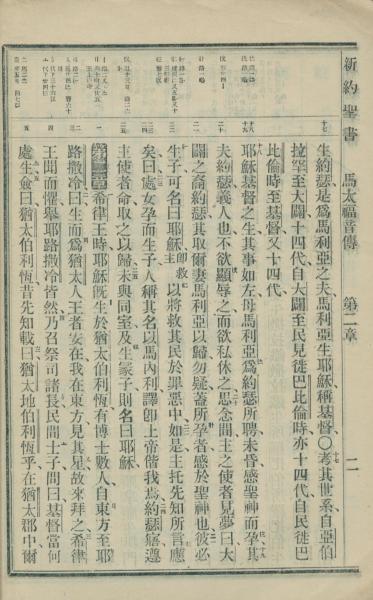 新約聖書 馬太福音傳 第二章 二
生約瑟是爲馬利亞之夫馬利亞生耶穌稱基督〇考其世系自亞伯
拉罕至大闢十四代自大闢至民見徙巴比倫時亦十四代自民徙巴
比倫時至基督又十四代
耶穌基督之生其事如左母馬利亞爲約瑟所聘未昏感聖神而孕其
夫約瑟義人也不欲顯辱之而欲私休之思念間主之使者見夢曰大
闢之裔約瑟其取爾妻馬利亞以歸勿疑蓋所孕者感於聖神也彼必
生子可名曰耶穌卽救主以將救其民於罪惡中如是主托先知所言應
矣曰處女孕而生子人稱其名以馬內利譯卽上帝偕我焉約瑟寤遵
主使者命取之以歸未與同室及生冢子則名曰耶穌
第二章希律王時耶穌旣生於猶太伯利恆有博士數人自東方至耶
路撒冷曰生而爲猶太人王者安在我在東方見其星故來拜之希律
王聞而懼舉耶路撒冷皆然乃召祭司諸長民間士子問曰基督當何
處生僉曰猶太伯利恆昔先知載曰猶太地伯利恆乎在猶太郡中爾